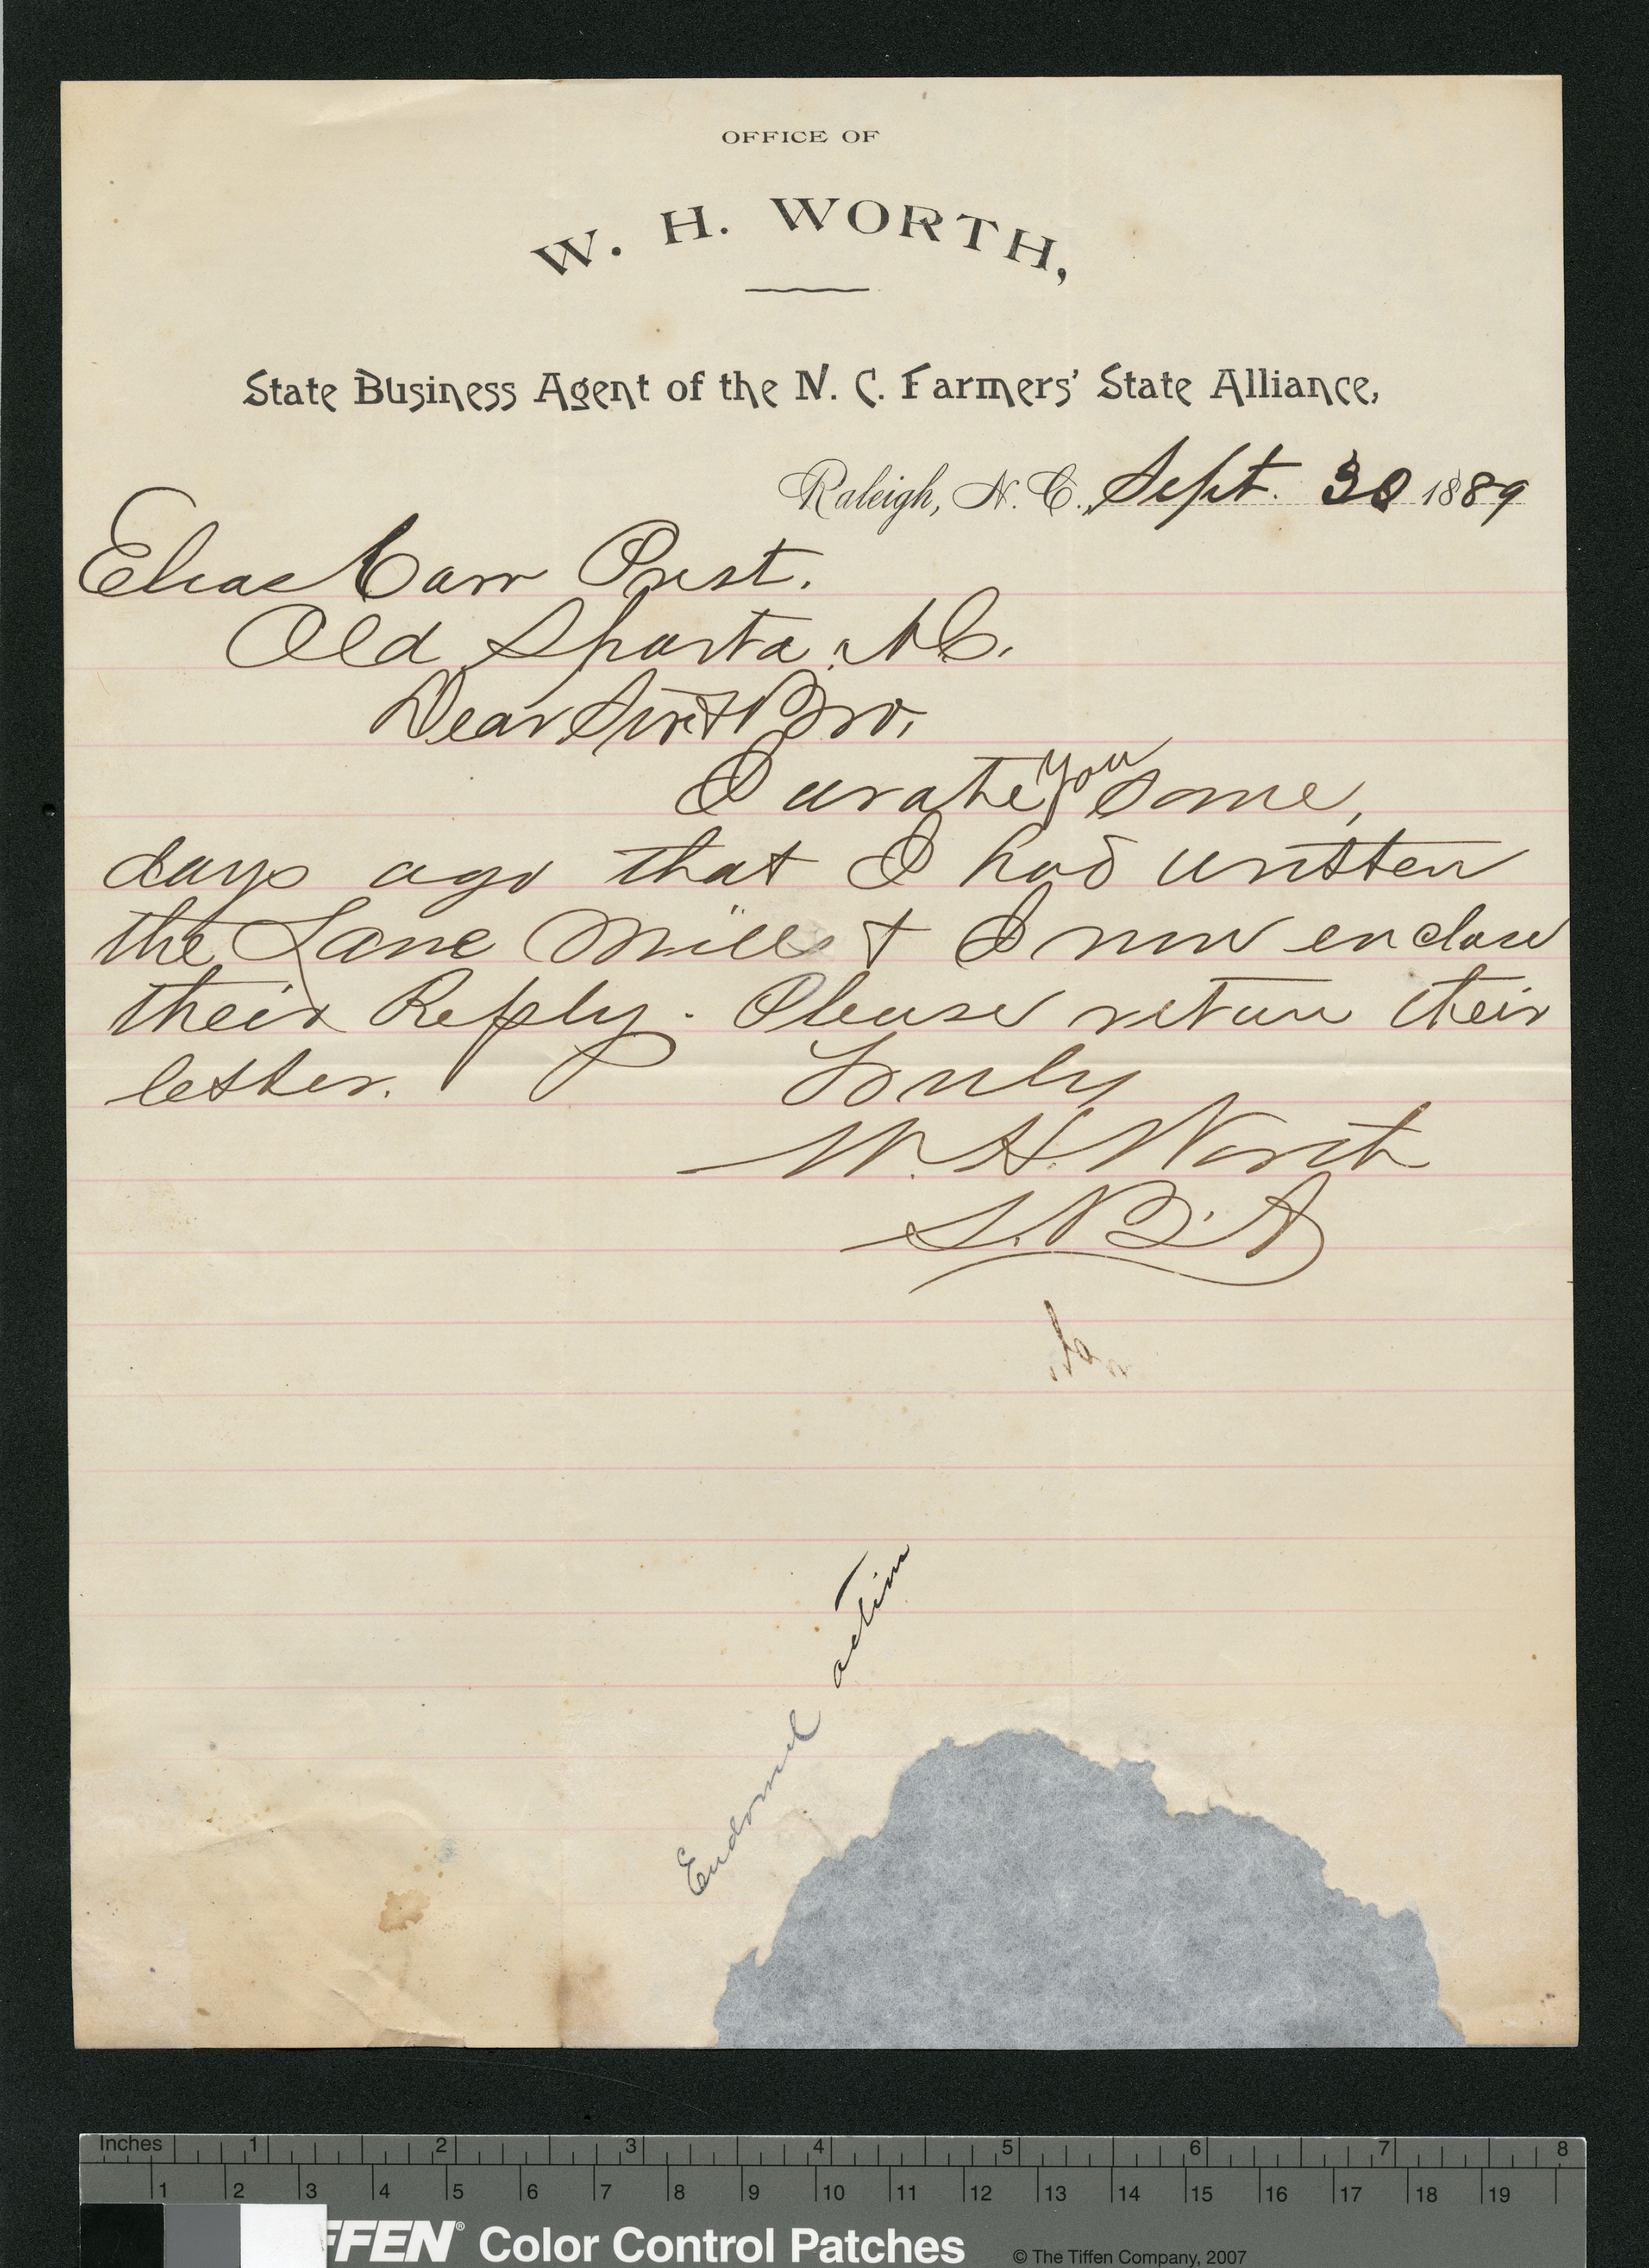 OFFICE OF
W. H. WORTH,
State Business Agent of the N. C. Farmers' State Alliance,
Raleigh, N. C., Sept. 30 1889
Elias Carr Prest.
Old Sparta N.C.
Dear Sir & Bro.
I wrote you some,
days ago that I had written
the Lane Mills & I now enclose
their Reply. Please return their
letter. Truly
W. H. Worth
S.B.A
action
Inches 1 2 3 4 5 6 7 8
1 2 3 4 5 6 7 8 9 10 11 12 13 14 15 16 17 18 19
FFEN® Color Control Patches © The Tiffen Company, 2007